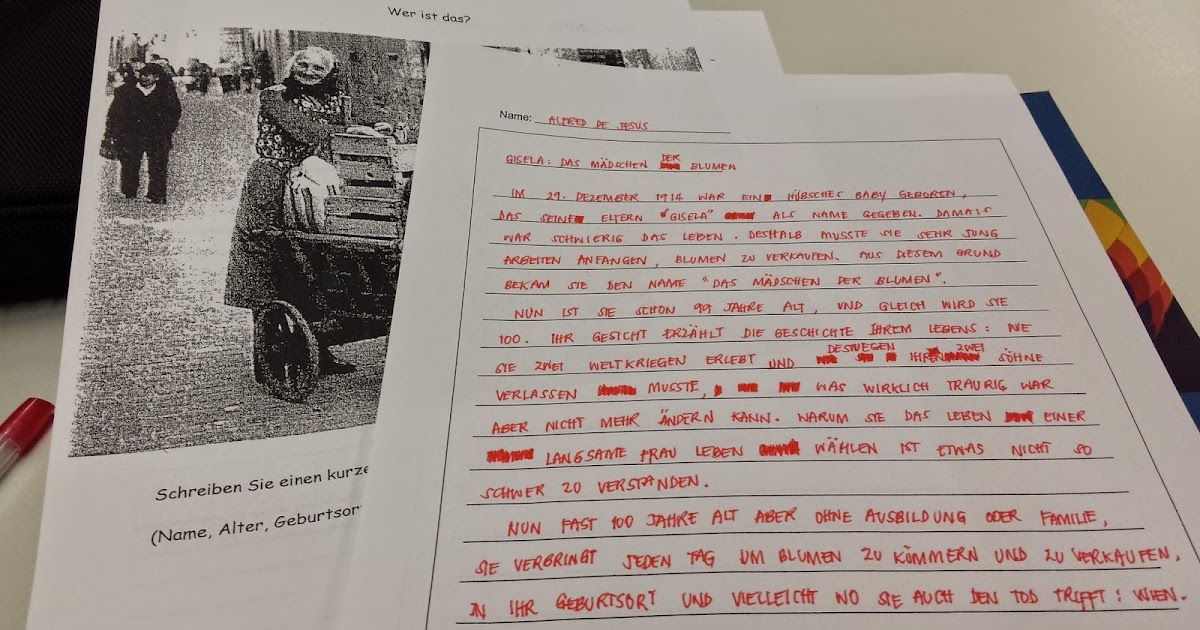 Wer ist das?
Schreiben Sie einen kurze
(Name, Alter, Geburtsor
Name: ALFRED DE JESUS
GISELA: DAS MÄDSCHEN DER BLUMEN
IM 29. DEZEMBER 1914 WAR EIN HÜBSCHES BABY GEBOREN,
DAS SEINE ELTERN "GISELA" ALS NAME GEGEBEN. DAMALS
WAR SCHWIERIG DAS LEBEN. DESHALB MUSSTE SIE SEHR JUNG
ARBEITEN ANFANGEN, BLUMEN ZU VERKAUFEN. AUS DIESEM GRUND
BEKAM SIE DEN NAME "DAS MÄDSCHEN DER BLUMEN".
NUN IST SIE SCHON 99 JAHRE ALT, UND GLEICH WIRD SIE
100. IHR GESICHT ERZÄHLT DIE GESCHICHTE IHREM LEBENS: WIE
SIE ZWEI WELTKRIEGEN ERLEBT UND DESWEGEN IHREN ZWEI SÖHNE
VERLASSEN MUSSTE, WAS WIRKLICH TRAURIG WAR
ABER NICHT MEHR ÄNDERN KANN. WARUM SIE DAS LEBEN EINER
LANGSAME FRAU LEBEN WÄHLEN IST ETWAS NICHT SO
SCHWER ZU VERSTANDEN.
NUN FAST 100 JAHRE ALT ABER OHNE AUSBILDUNG ODER FAMILIE,
SIE VERBRINGT JEDEN TAG UM BLUMEN ZU KÜMMERN UND ZU VERKAUFEN,
IN IHR GEBURTSORT UND VIELLEICHT WO SIE AUCH DEN TOD TRIFFT: WIEN.